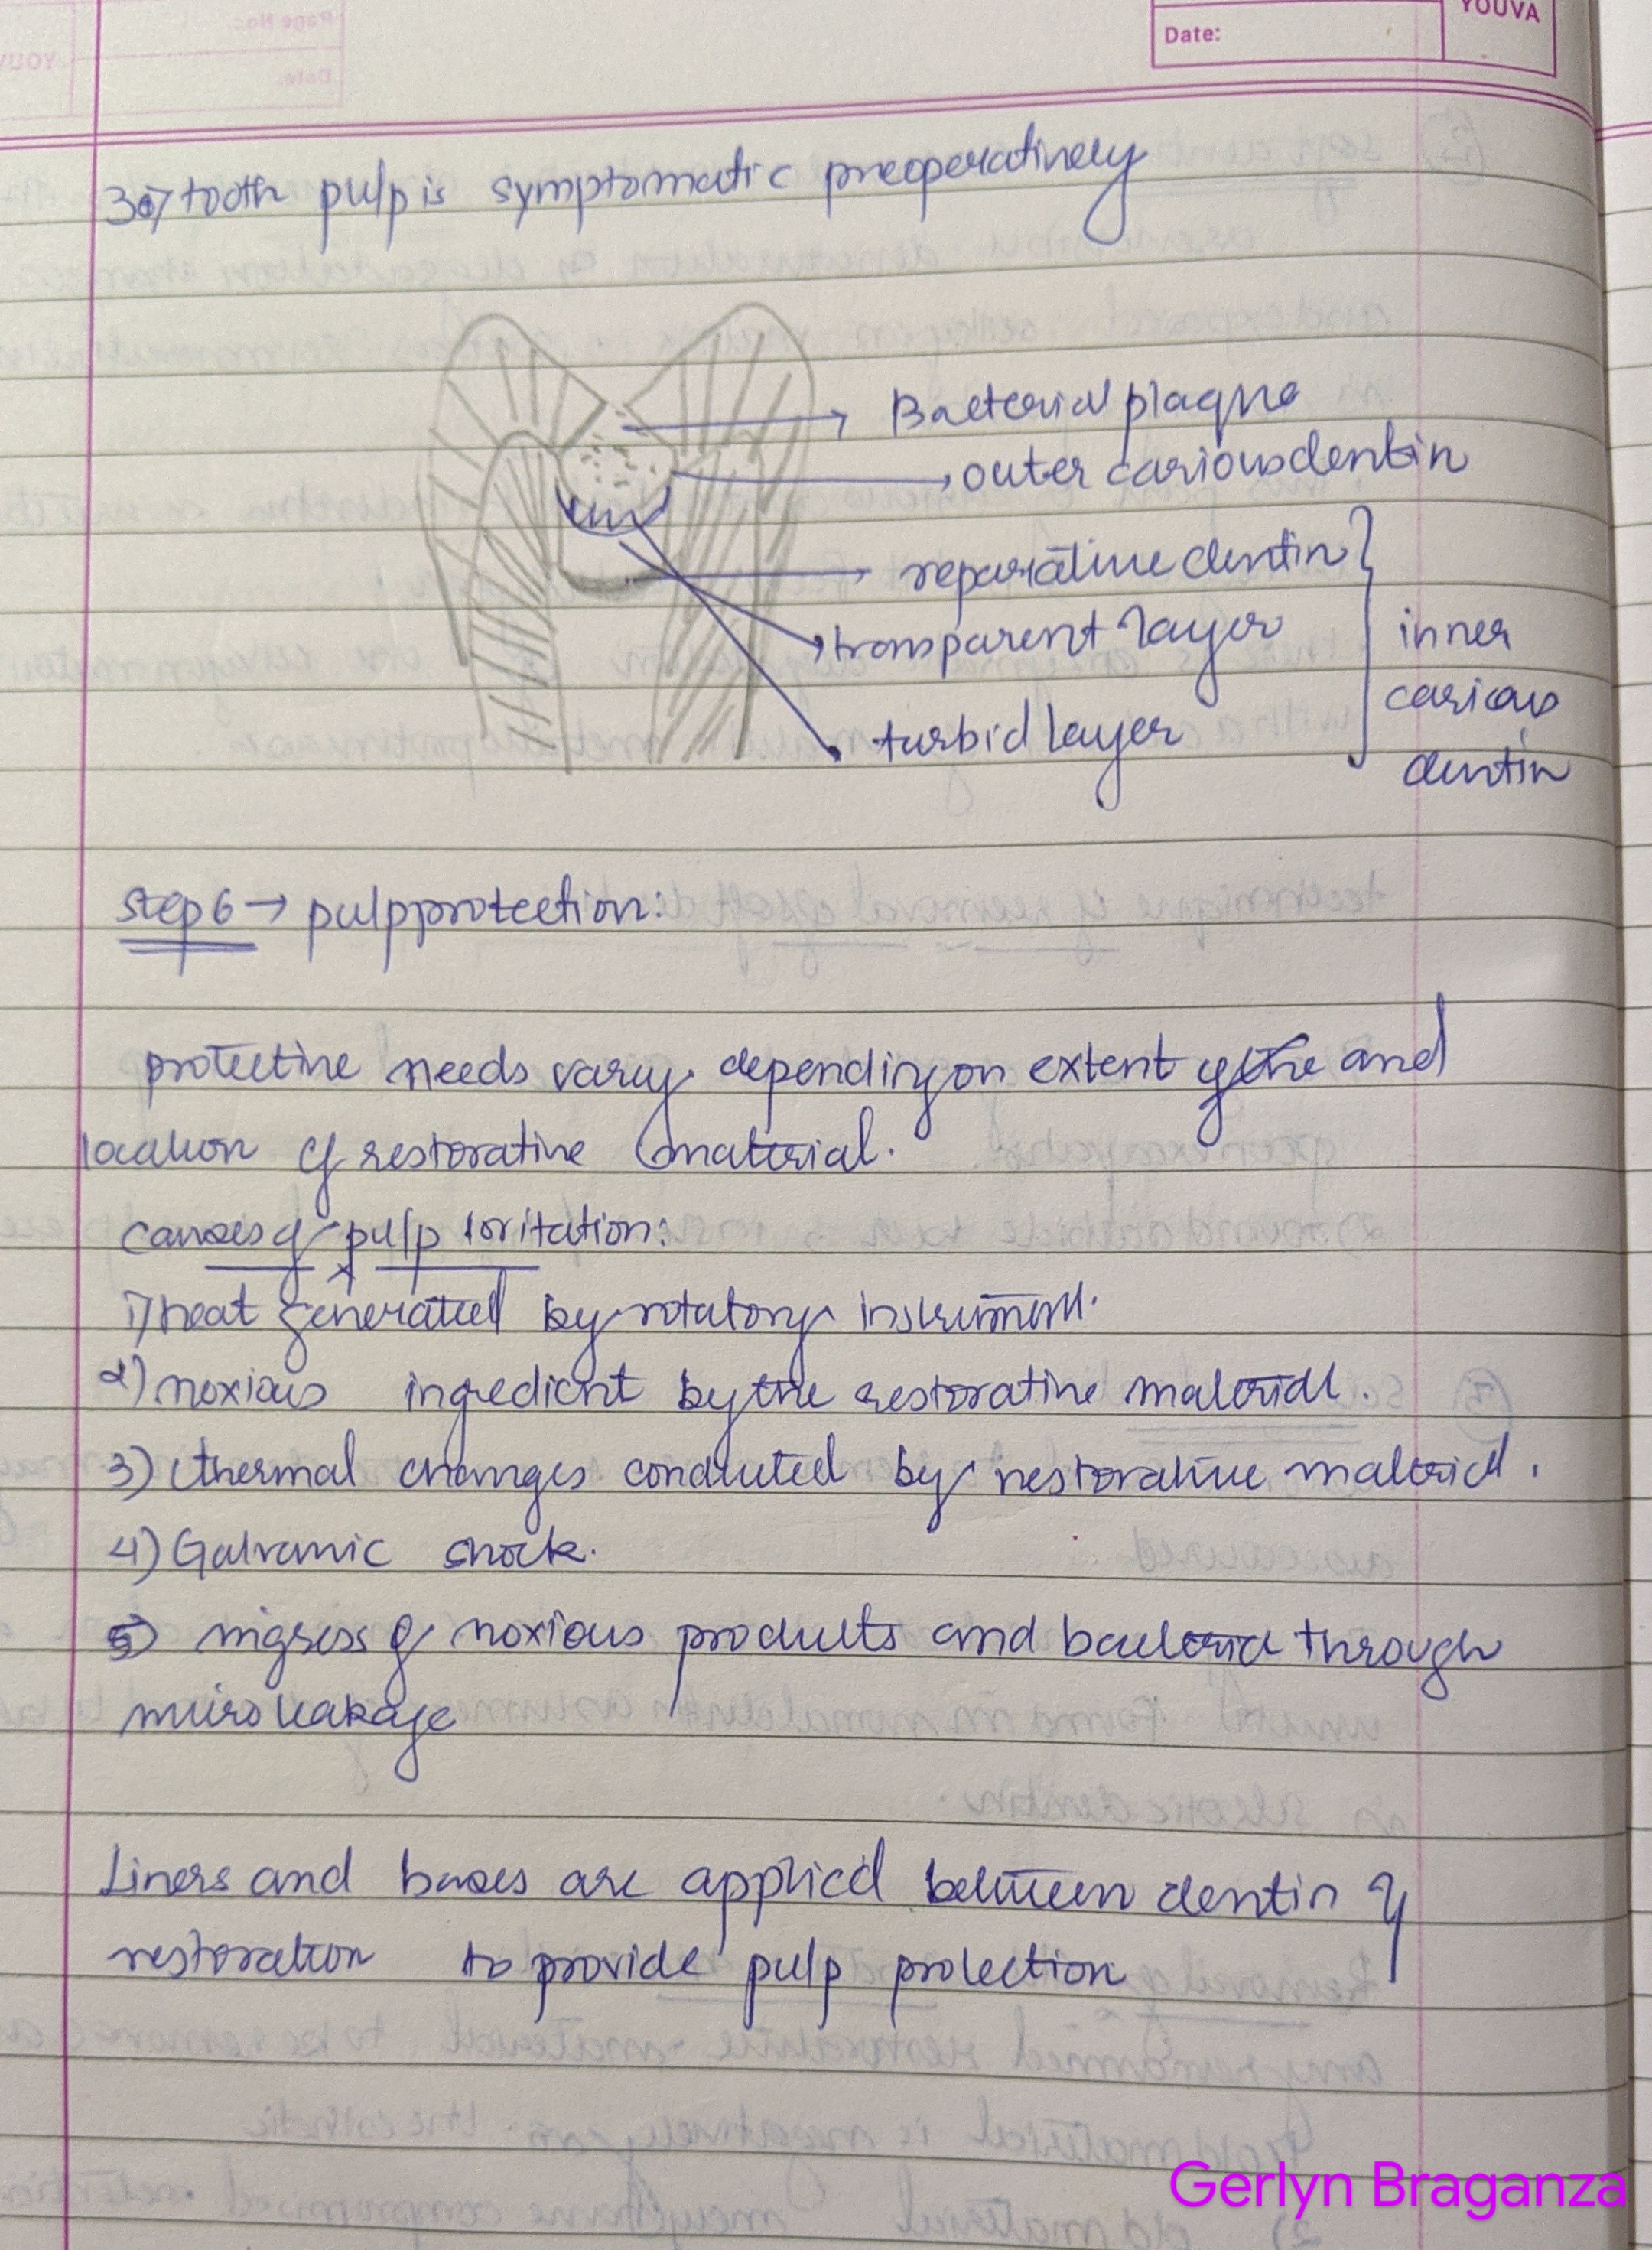 YOUVA
Date:
3) tooth pulp is symptomatic preoperatively
Bacterial plaque
outer carious dentin
reparative dentin
transparent layer
turbid layer
inner
carious
dentin
step 6 → pulp protection:
protective needs vary depending on extent of the and
location of restorative material.
causes of pulp irritation:
1) heat generated by rotatory instrument.
2) noxious ingredient by the restorative material.
3) thermal changes conducted by restorative material.
4) Galvanic shock.
5) ingress of noxious products and bacteria through
microleakage
Liners and bases are applied between dentin &
restoration to provide pulp protection
Gerlyn Braganza